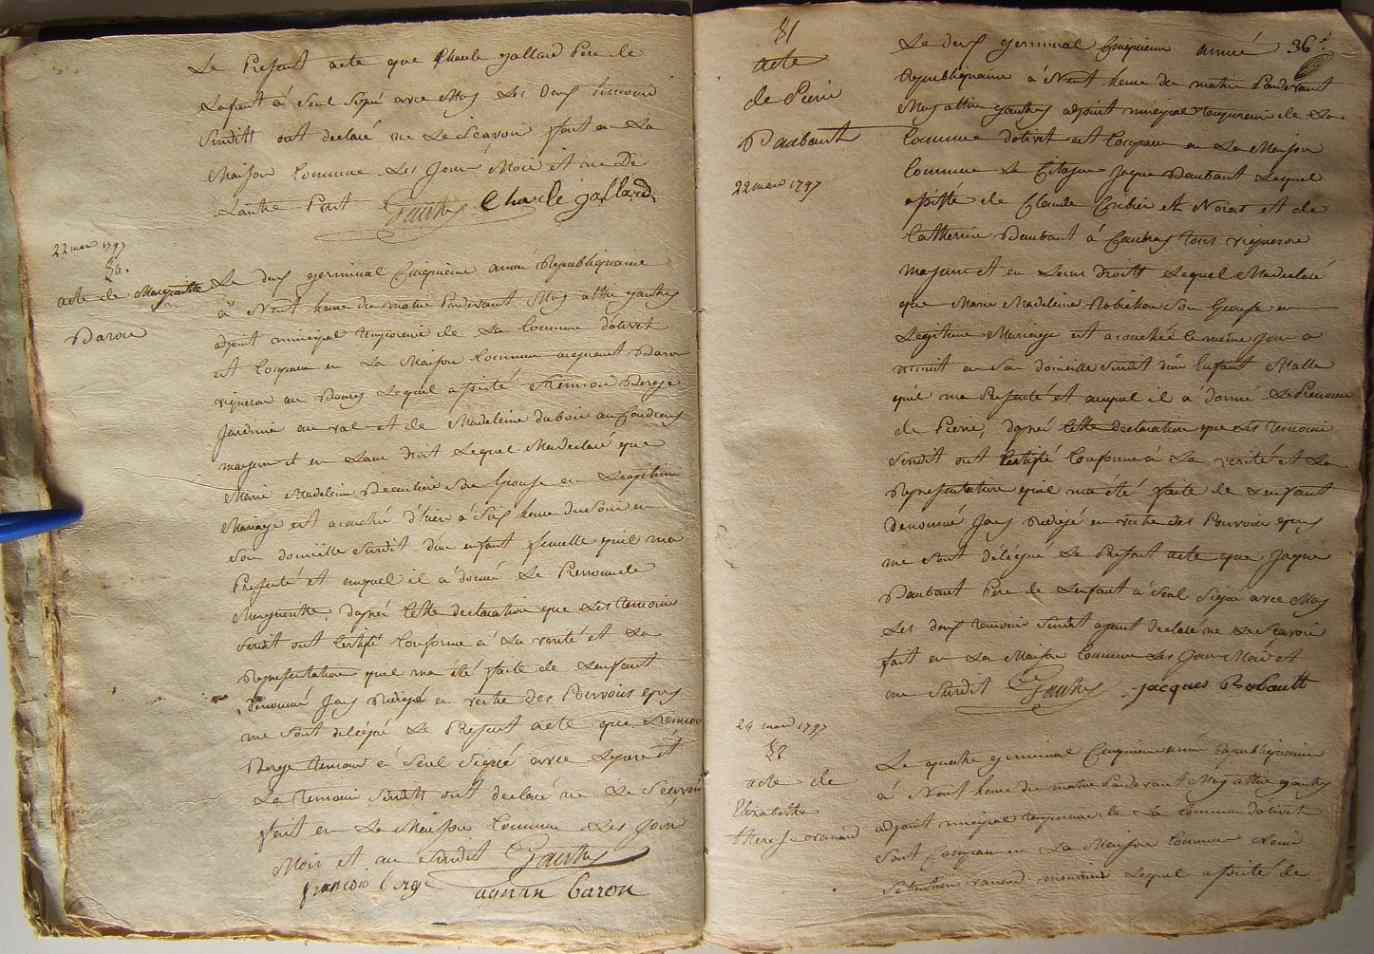 Le Present acte que Charle gallard Pere de
Lenfant à Seul Signé avec Moy Les deux temoins
Susdits ont declaré ne Le Scavoir fait en La
Maison Commune Les Jour Mois et an De
L'autre Part Gauthey Charle gallard
22 mars 1797
acte de Marguerite
Baron
Le deux germinal Cinquieme année Republiquaine
à Neuf heure du matin Pardevant Moy
adjoint municipal de La Commune d'olivet
est Comparu en La Maison Commune aignant Baron
vigneron au Bourg Lequel assisté Berge
Jardinier au val et de Madeleine duboie
majeur et en Leur Droit Lequel Ma declaré que
Marie Madeleine Son Epouse en Legitime
Mariage est acouché d'hier à Six heure du Soir en
Son domicille Susdit d'un enfant femelle quil ma
Presenté et auquel il à donné Le Prenom de
Marguerite, dapré cette declaration que Les temoins
Susdit ont Certifié Conforme à La verité et La
Representation quil ma été faite de Lenfant
denommé Jay Redigé en vertu des Pouvoirs quy
me Sont délégué Le Present acte que
Berge temoin à Seul Signé avec Lepere et
Le temoin Susdit ont declaré ne Le Scavoir
fait en La Maison Commune Les Jour
Mois et an Susdit Gauthey
francois berge agnan baron
51
acte
de Pierre
Baubault
22 mars 1797
Le deux germinal Cinquieme année 36e
Republiquaine à Neuf heure du matin Pardevant
Moy adjoint municipal de La
Commune dolivet est Comparu en La Maison
Commune Le Citoyen Jaque Baubaut Lequel
assisté de Claude et de
Catherine Baubaut à tous vigneron
majeur et en Leur droits Lequel Ma declaré
que Marie Madeleine Robichon Son Epouse en
Legitime Mariage est acouchée Le même jour a
minuit en Son domicile Susdit d'un Enfant Malle
quil ma Presenté et auquel il à donné Le Prenom
de Pierre, dapré Cette declaration que Les temoins
Susdit ont Certifié Conforme à La verité et La
Representation quil ma été faite de Lenfant
denommé Jay Redigé en vertu des Pouvoir quy
me Sont delegué Le Present acte que Jaque
Baubaut Pere de Lenfant à Seul Signé avec Moy
Les deux temoins Susdit ayant declaré ne Le Scavoir
fait en La Maison Commune Les Jour Mois et
an Susdit Gauthey jacques Bobault
24 mars 1797
52
acte de
Elizabethe
therese
Le quatre germinal Cinquieme année republiquaine
à Neuf heure du matin Pardevant Moy
adjoint municipal de La Commune dolivet
Sont Comparu en La Maison Commune
Lequel assisté de